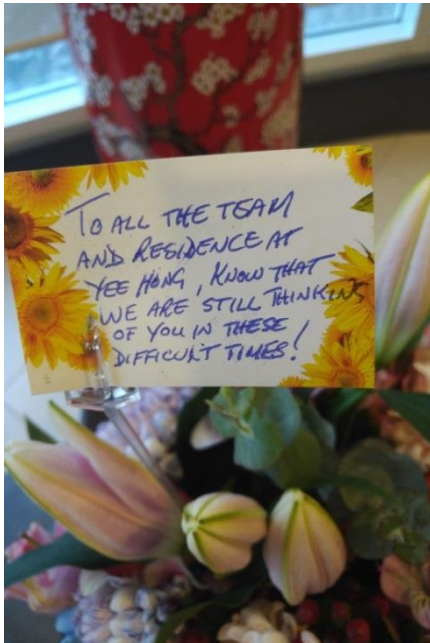 TO ALL THE TEAM
AND RESIDENCE AT
YEE HONG, KNOW THAT
WE ARE STILL THINKING
OF YOU IN THESE
DIFFICULT TIMES!